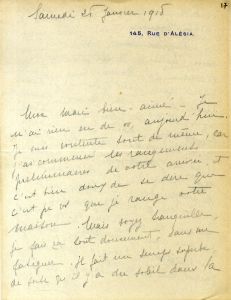 17
Samedi 25 Janvier 1918
145, RUE D'ALÉSIA
Mon mari bien-aimé - Je
n'ai rien eu de vous aujourd'hui.
Je suis contente tout de même, car
j'ai commencé les rangements
préliminaires de votre arrivée, et
c'est bien doux de se dire que
c'est pr vous que je range notre
maison. Mais soyez tranquille,
je fais ça tout doucement, sans me
fatiguer. Il fait un temps superbe
de sorte qu'il y a du soleil dans la